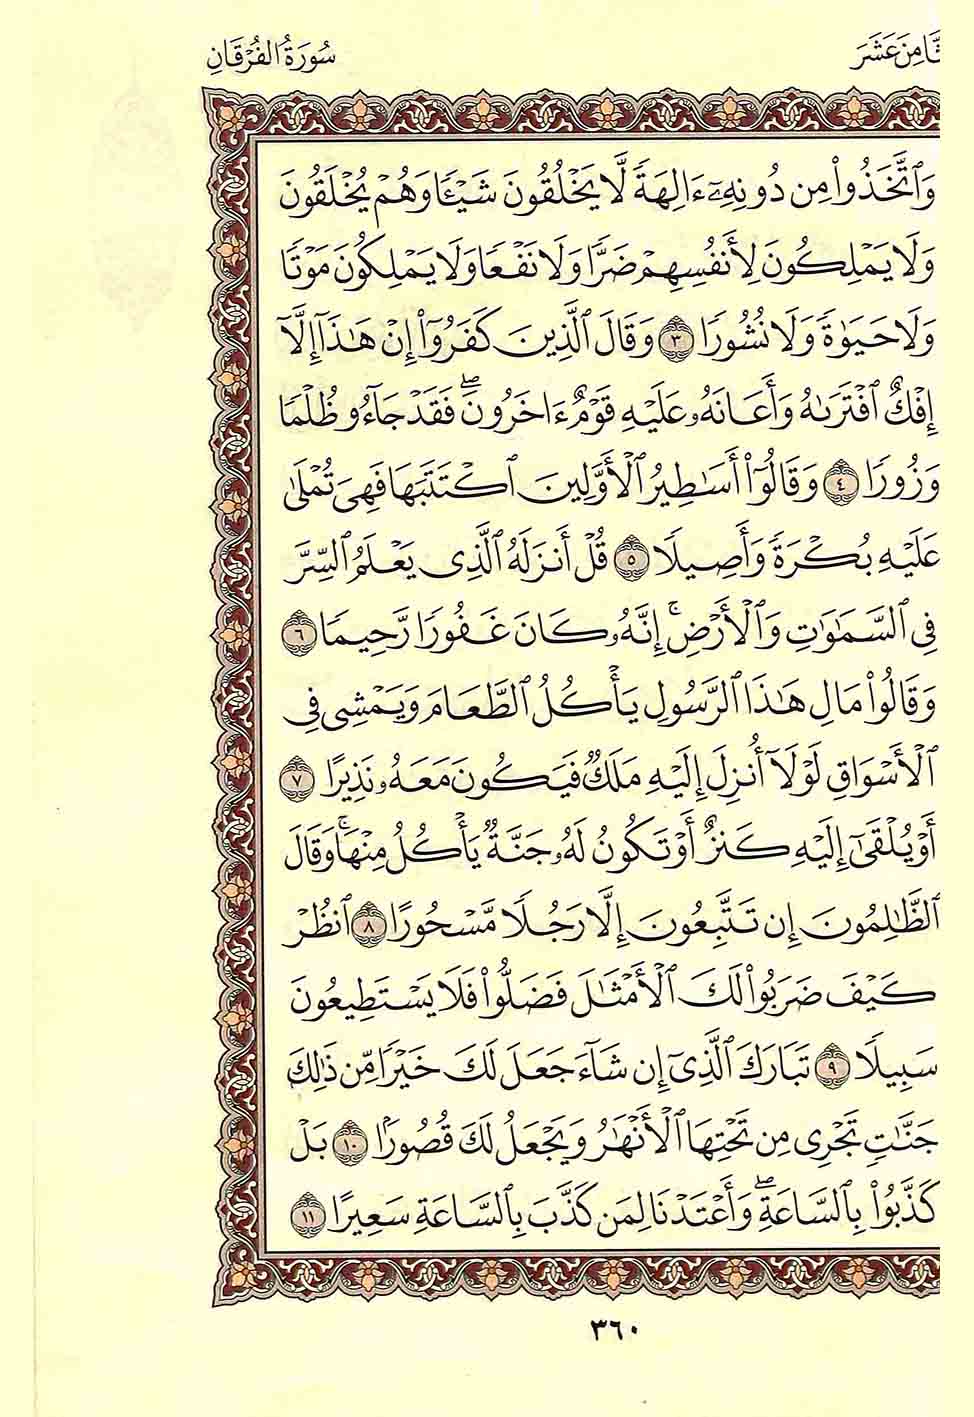 ثَّامِنَ عَشَرَ سُورَةُ الفُرْقَانِ
وَٱتَّخَذُوا۟ مِن دُونِهِۦٓ ءَالِهَةً لَّا يَخْلُقُونَ شَيْـًٔا وَهُمْ يُخْلَقُونَ
وَلَا يَمْلِكُونَ لِأَنفُسِهِمْ ضَرًّا وَلَا نَفْعًا وَلَا يَمْلِكُونَ مَوْتًا
وَلَا حَيَوٰةً وَلَا نُشُورًا ٣ وَقَالَ ٱلَّذِينَ كَفَرُوٓا۟ إِنْ هَـٰذَآ إِلَّآ
إِفْكٌ ٱفْتَرَىٰهُ وَأَعَانَهُۥ عَلَيْهِ قَوْمٌ ءَاخَرُونَ ۖ فَقَدْ جَآءُو ظُلْمًا
وَزُورًا ٤ وَقَالُوٓا۟ أَسَـٰطِيرُ ٱلْأَوَّلِينَ ٱكْتَتَبَهَا فَهِىَ تُمْلَىٰ
عَلَيْهِ بُكْرَةً وَأَصِيلًا ٥ قُلْ أَنزَلَهُ ٱلَّذِى يَعْلَمُ ٱلسِّرَّ
فِى ٱلسَّمَـٰوَٰتِ وَٱلْأَرْضِ ۚ إِنَّهُۥ كَانَ غَفُورًا رَّحِيمًا ٦
وَقَالُوا۟ مَالِ هَـٰذَا ٱلرَّسُولِ يَأْكُلُ ٱلطَّعَامَ وَيَمْشِى فِى
ٱلْأَسْوَاقِ لَوْلَآ أُنزِلَ إِلَيْهِ مَلَكٌ فَيَكُونَ مَعَهُۥ نَذِيرًا ٧
أَوْ يُلْقَىٰٓ إِلَيْهِ كَنزٌ أَوْ تَكُونُ لَهُۥ جَنَّةٌ يَأْكُلُ مِنْهَا ۚ وَقَالَ
ٱلظَّـٰلِمُونَ إِن تَتَّبِعُونَ إِلَّا رَجُلًا مَّسْحُورًا ٨ ٱنظُرْ
كَيْفَ ضَرَبُوا۟ لَكَ ٱلْأَمْثَـٰلَ فَضَلُّوا۟ فَلَا يَسْتَطِيعُونَ
سَبِيلًا ٩ تَبَارَكَ ٱلَّذِىٓ إِن شَآءَ جَعَلَ لَكَ خَيْرًا مِّن ذَٰلِكَ
جَنَّـٰتٍ تَجْرِى مِن تَحْتِهَا ٱلْأَنْهَـٰرُ وَيَجْعَل لَّكَ قُصُورًۢا ١٠ بَلْ
كَذَّبُوا۟ بِٱلسَّاعَةِ ۖ وَأَعْتَدْنَا لِمَن كَذَّبَ بِٱلسَّاعَةِ سَعِيرًا ١١
٣٦٠